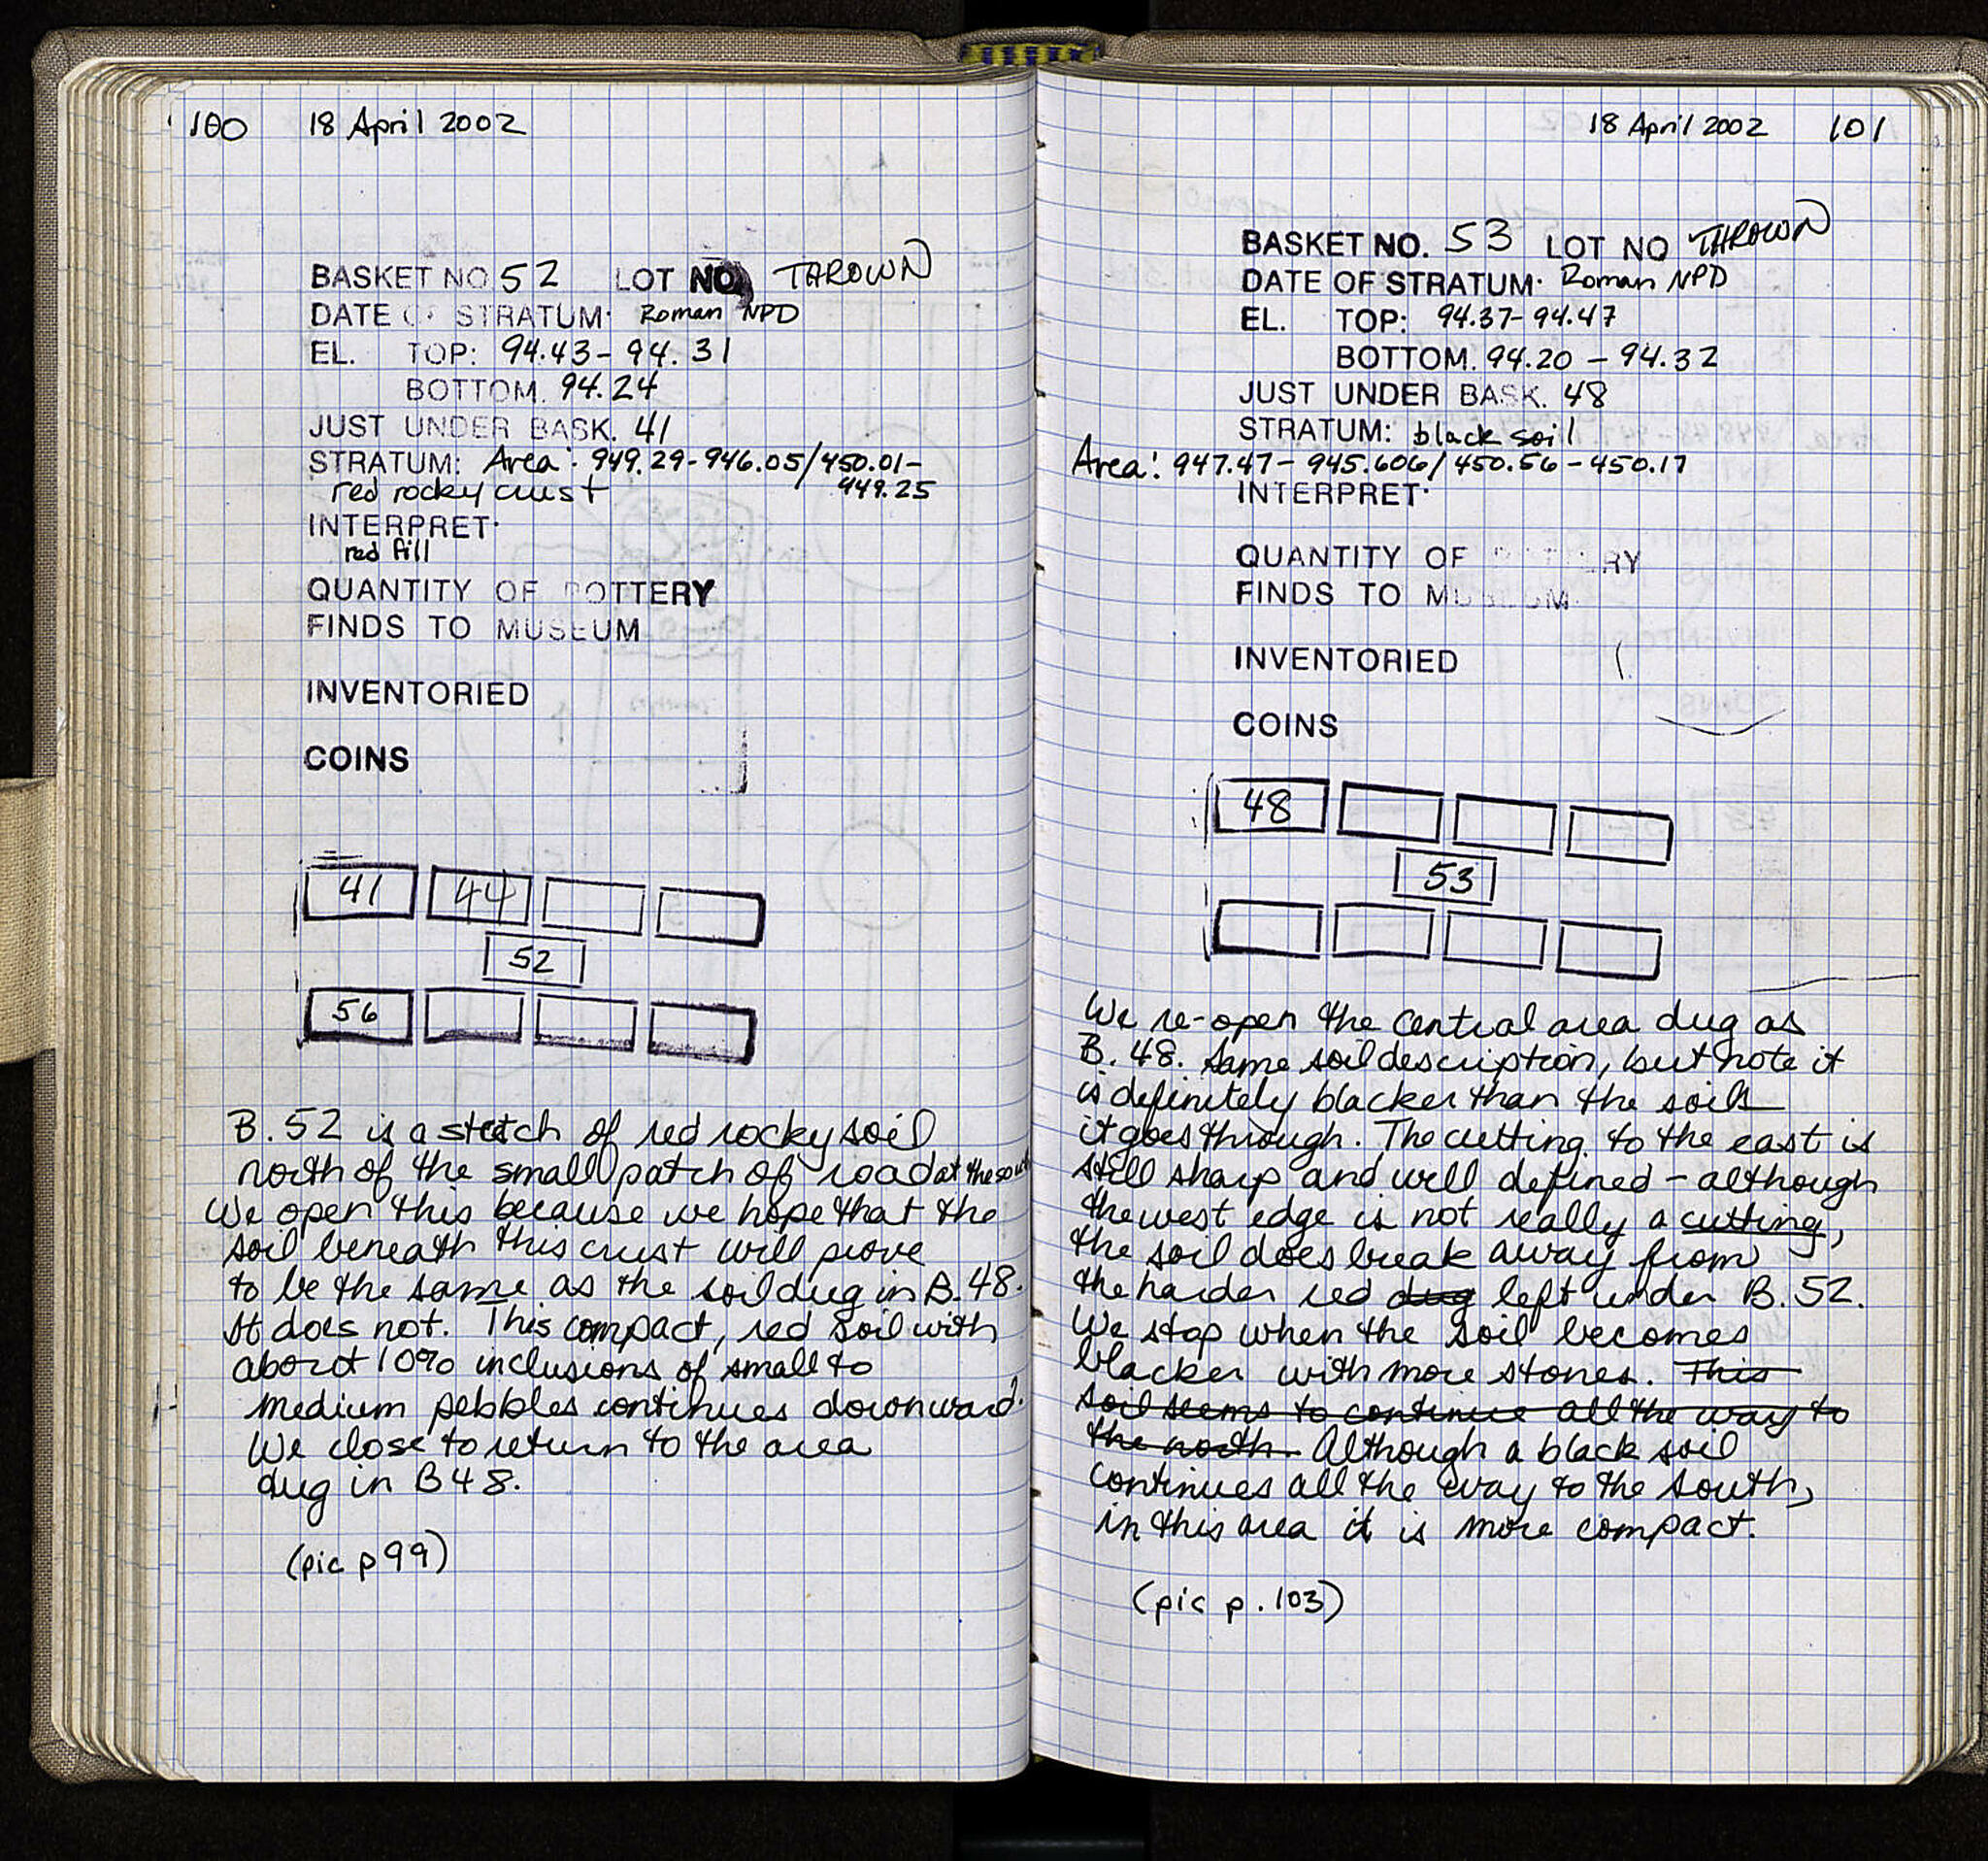 100 18 April 2002
BASKET NO. 52 LOT NO. THROWN
DATE OF STRATUM: Roman NPD
EL. TOP: 94.43 - 94.31
BOTTOM. 94.24
JUST UNDER BASK. 41
STRATUM: Area: 949.29-946.05/450.01-
449.25
red rocky crust
INTERPRET.
red fill
QUANTITY OF POTTERY
FINDS TO MUSEUM
INVENTORIED
COINS
41 44
52
56
B.52 is a stretch of red rocky soil
north of the small patch of road at the south
We open this because we hope that the
soil beneath this crust will prove
to be the same as the soil dug in B.48.
It does not. This compact, red soil with
about 10% inclusions of small to
medium pebbles continues downward.
We close to return to the area
dug in B48.
(pic p 99)
18 April 2002 101
BASKET NO. 53 LOT NO THROWN
DATE OF STRATUM: Roman NPD
EL. TOP: 94.37-94.47
BOTTOM. 94.20 - 94.32
JUST UNDER BASK. 48
STRATUM: black soil
Area: 947.47-945.606/450.56-450.17
INTERPRET.
QUANTITY OF POTTERY
FINDS TO MUSEUM
INVENTORIED
COINS
48
53
We re-open the central area dug as
B.48. Same soil description, but note it
is definitely blacker than the soils
it goes through. The cutting to the east is
still sharp and well defined - although
the west edge is not really a cutting,
the soil does break away from
the harder red dug left under B.52.
We stop when the soil becomes
blacker with more stones. This
soil seems to continue all the way to
the north. Although a black soil
continues all the way to the south,
in this area it is more compact.
(pic p. 103)